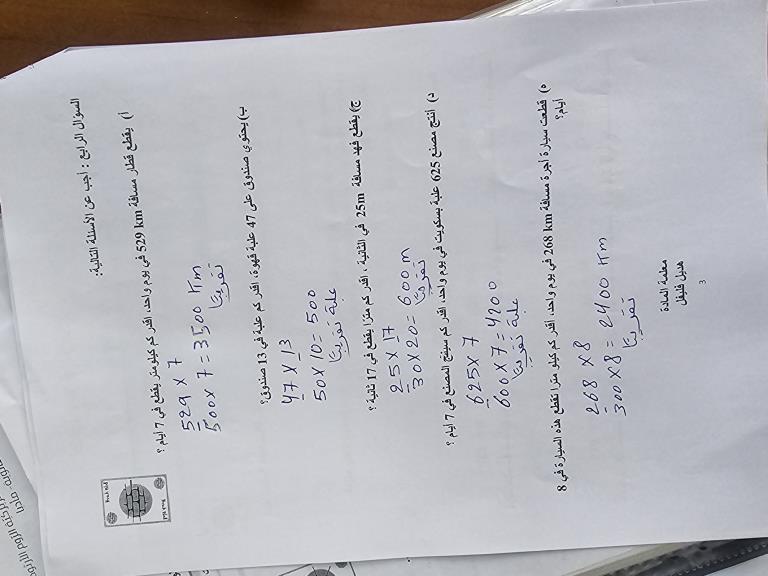 السؤال الرابع : أجب عن الأسئلة التالية:
أ) يقطع قطار مسافة 529 km في يوم واحد، اقدر كم كيلو متر يقطع في 7 أيام ؟
529 x 7
500 x 7 = 3500 Km
تقريبًا
ب) يحتوي صندوق على 47 علبة قهوة، اقدر كم علبة في 13 صندوق؟
47 x 13
50 x 10 = 500
علبة تقريبًا
ج) يقطع فهد مسافة 25m في الثانية ، اقدر كم مترا يقطع في 17 ثانية ؟
25 x 17
30 x 20 = 600 m
تقريبًا
د) أنتج مصنع 625 علبة بسكويت في يوم واحد، اقدر كم سينتج المصنع في 7 أيام ؟
625 x 7
600 x 7 = 4200
علبة تقريبًا
ه) قطعت سيارة أجرة مسافة 268 km في يوم واحد، اقدر كم كيلو مترا تقطع هذه السيارة في 8
أيام؟
268 x 8
300 x 8 = 2400 Km
تقريبًا
معلمة المادة
هديل فليفل
3